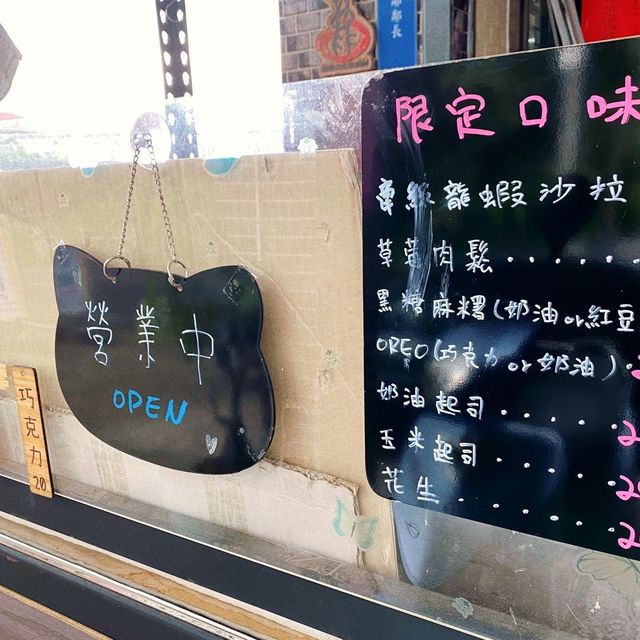 鄰長
限定口味
龍蝦沙拉
草莓肉鬆......
黑糖麻糬(奶油or紅豆
OREO(巧克力or奶油).
奶油起司.....2
玉米起司.....2
花生.....2
營業中
OPEN
巧克力
20